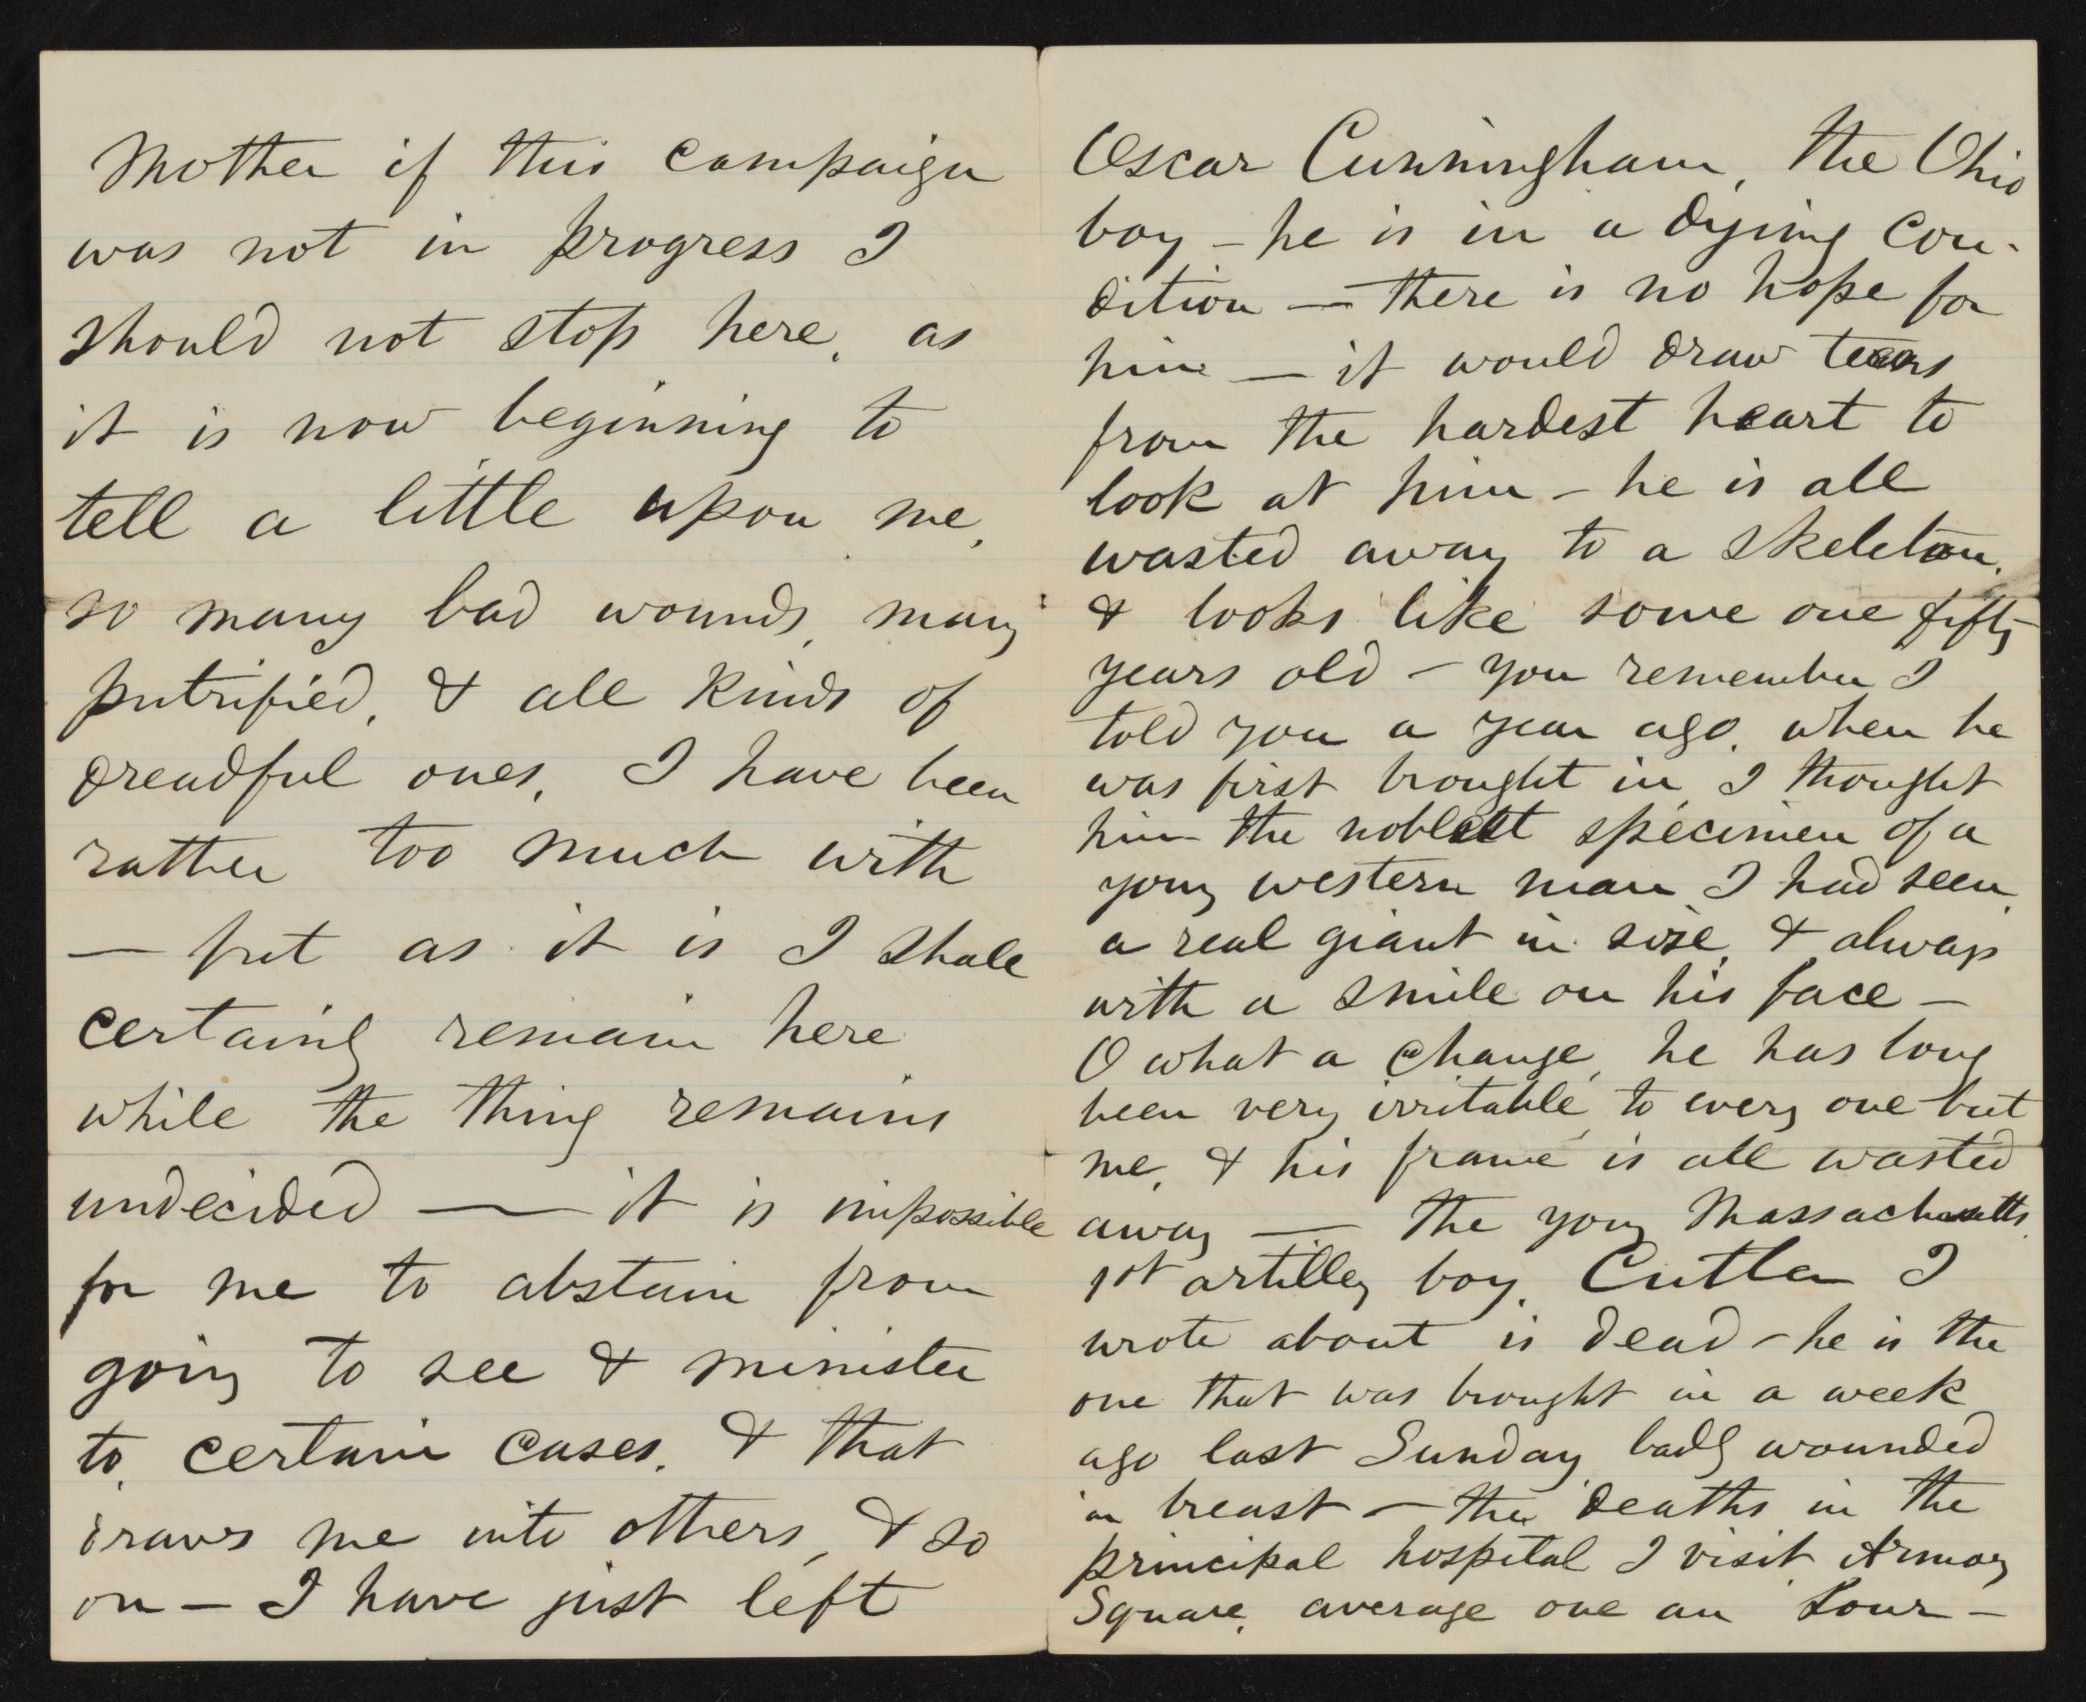 Mother if this campaign
was not in progress I
should not stop here, as
it is now beginning to
tell a little upon me,
so many bad wounds, many
putrified, & all kinds of
dreadful ones, I have been
rather too much with
— but as it is I shall
certainly remain here
while the thing remains
undecided — it is impossible
for me to abstain from
going to see & minister
to certain cases, & that
draws me into others, & so
on — I have just left
Oscar Cunningham, the Ohio
boy — he is in a dying con-
dition — there is no hope for
him — it would draw tears
from the hardest heart to
look at him — he is all
wasted away to a skeleton,
& looks like some one fifty
years old — you remember I
told you a year ago, when he
was first brought in, I thought
him the noblest specimen of a
young western man I had seen,
a real giant in size, & always
with a smile on his face —
O what a change, he has long
been very irritable, to every one but
me, & his frame is all wasted
away — the young Massachusetts
1st artillery boy, Cutler I
wrote about is dead — he is the
one that was brought in a week
ago last Sunday, badly wounded
in breast — the deaths in the
principal hospital I visit, Armory
Square, average one an hour —